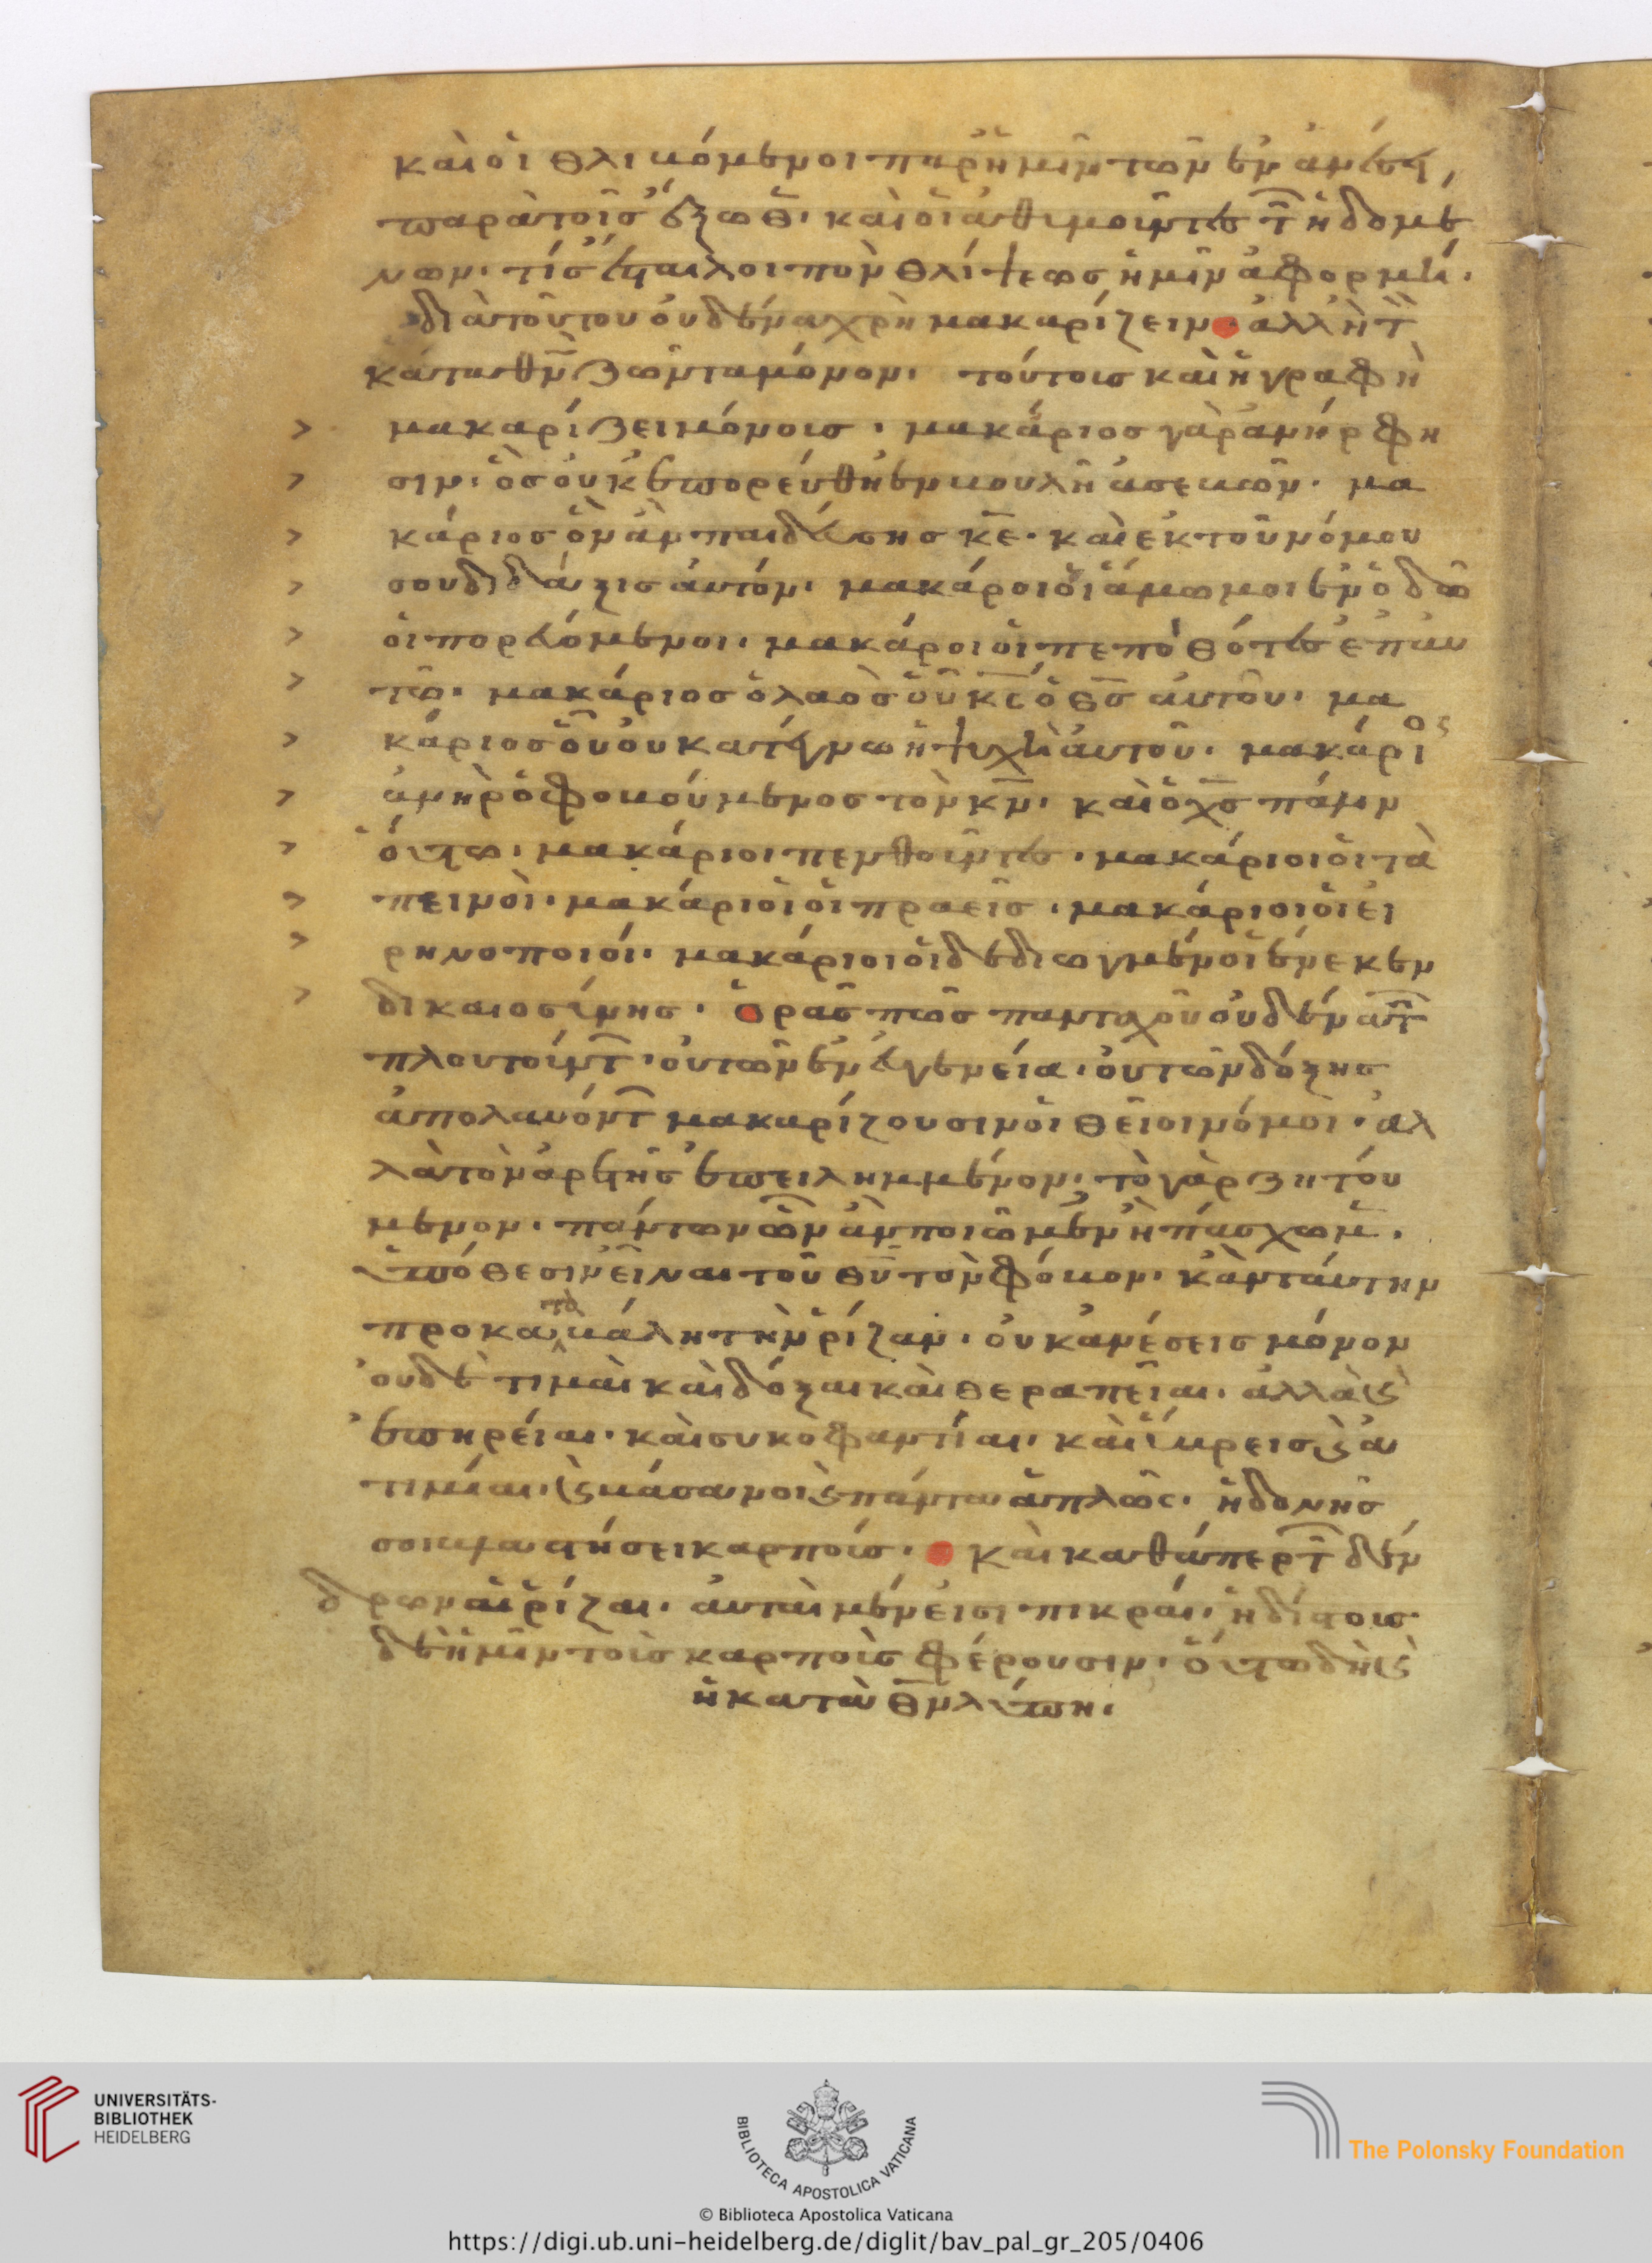 καὶ οἱ θλιβόμενοι παρ ἡμῖν τῶν ἐν ἀνέσει
παρὰ τοῖς ἔξωθ· καὶ οἱ ἀθυμοῦντες τ ἡδομέ
νων· τίς ἔσται λοιπὸν θλίψεως ἡμῖν ἀφορμή·
διὰ τοῦτο οὐδένα χρὴ μακαρίζειν· ἀλλ ἢ τ
κατὰ θν ζῶντα μόνον· τούτοις καὶ ἡ γραφὴ
μακαρίζει μόνοις· μακάριος γὰρ ἀνήρ φη
σιν· ὃς οὐκ ἐπορεύθη ἐν βουλῇ ἀσεβῶν· μα
κάριος ὃν ἂν παιδεύσης κε· καὶ ἐκ τοῦ νόμου
σου διδάξις αὐτόν· μακάριοι οἱ ἄμωμοι ἐν ὁδῶ
οἱ πορευόμενοι· μακάροι οἱ πεποιθότες ἐπ αυ
τῶ· μακάριος ὁ λαὸς οὗ κς ὁ θς αὐτοῦ· μα
κάριος ὃν οὐ κατέγνω ἡ ψυχὴ αὐτοῦ· μακάριος
ἀνὴρ ὁ φοβούμενος τὸν κν· καὶ ὁ χς πάλιν
οὕτω· μακάριοι πενθοῦντες· μακάριοι οἱ τα
πεινοὶ· μακάριοι οἱ πραεῖς· μακάριοι οἱ εἰ
ρηνοποιοί· μακάριοι οἱ δεδιωγμένοι ἕνεκεν
δικαιοσύνης· ὁρᾶς πῶς πανταχοῦ οὐδένα τ
πλουτούντ· οὐ τῶν ἐν εὐγενεία· οὐ τῶν δόξης
ἀπολαυόντ μακαρίζουσιν οἱ θεῖοι νόμοι· ἀλ
λὰ τὸν ἀρετῆς ἐπειλημμένον· τὸ γὰρ ζητού
μενον· πάντων ὧν ἂν ποιῶμεν ἢ πάσχωμ·
ὑπόθεσιν εἶναι τοῦ θυ τὸν φόβον· κἂν ταύτην
προκαταβάλη τὴν ῥίζαν· οὐκ ἀνέσεις μόνον
οὐδὲ τιμαὶ καὶ δόξαι καὶ θεραπεῖαι· ἀλλὰ ϗ
ἐπηρείαι· καὶ συκοφαντίαι· καὶ ὕβρεις ϗ ἀ
τιμίαι· ϗ βάσανοι ϗ πάντα ἁπλῶς· ἡδονῆς
σοι βλαστήσει καρπούς· καὶ καθάπερ τ δέν
δρων αἱ ῥίζαι· αὐταὶ μέν εἰσι πικραί· ἡδίστους
δὲ ἡμῖν τοὺς καρποὺς φέρουσιν· οὕτω δὴ ϗ
ἡ κατὰ θν λύπη·
UNIVERSITÄTS-
BIBLIOTHEK
HEIDELBERG
BIBLIOTECA APOSTOLICA VATICANA
The Polonsky Foundation
© Biblioteca Apostolica Vaticana
https://digi.ub.uni-heidelberg.de/diglit/bav_pal_gr_205/0406